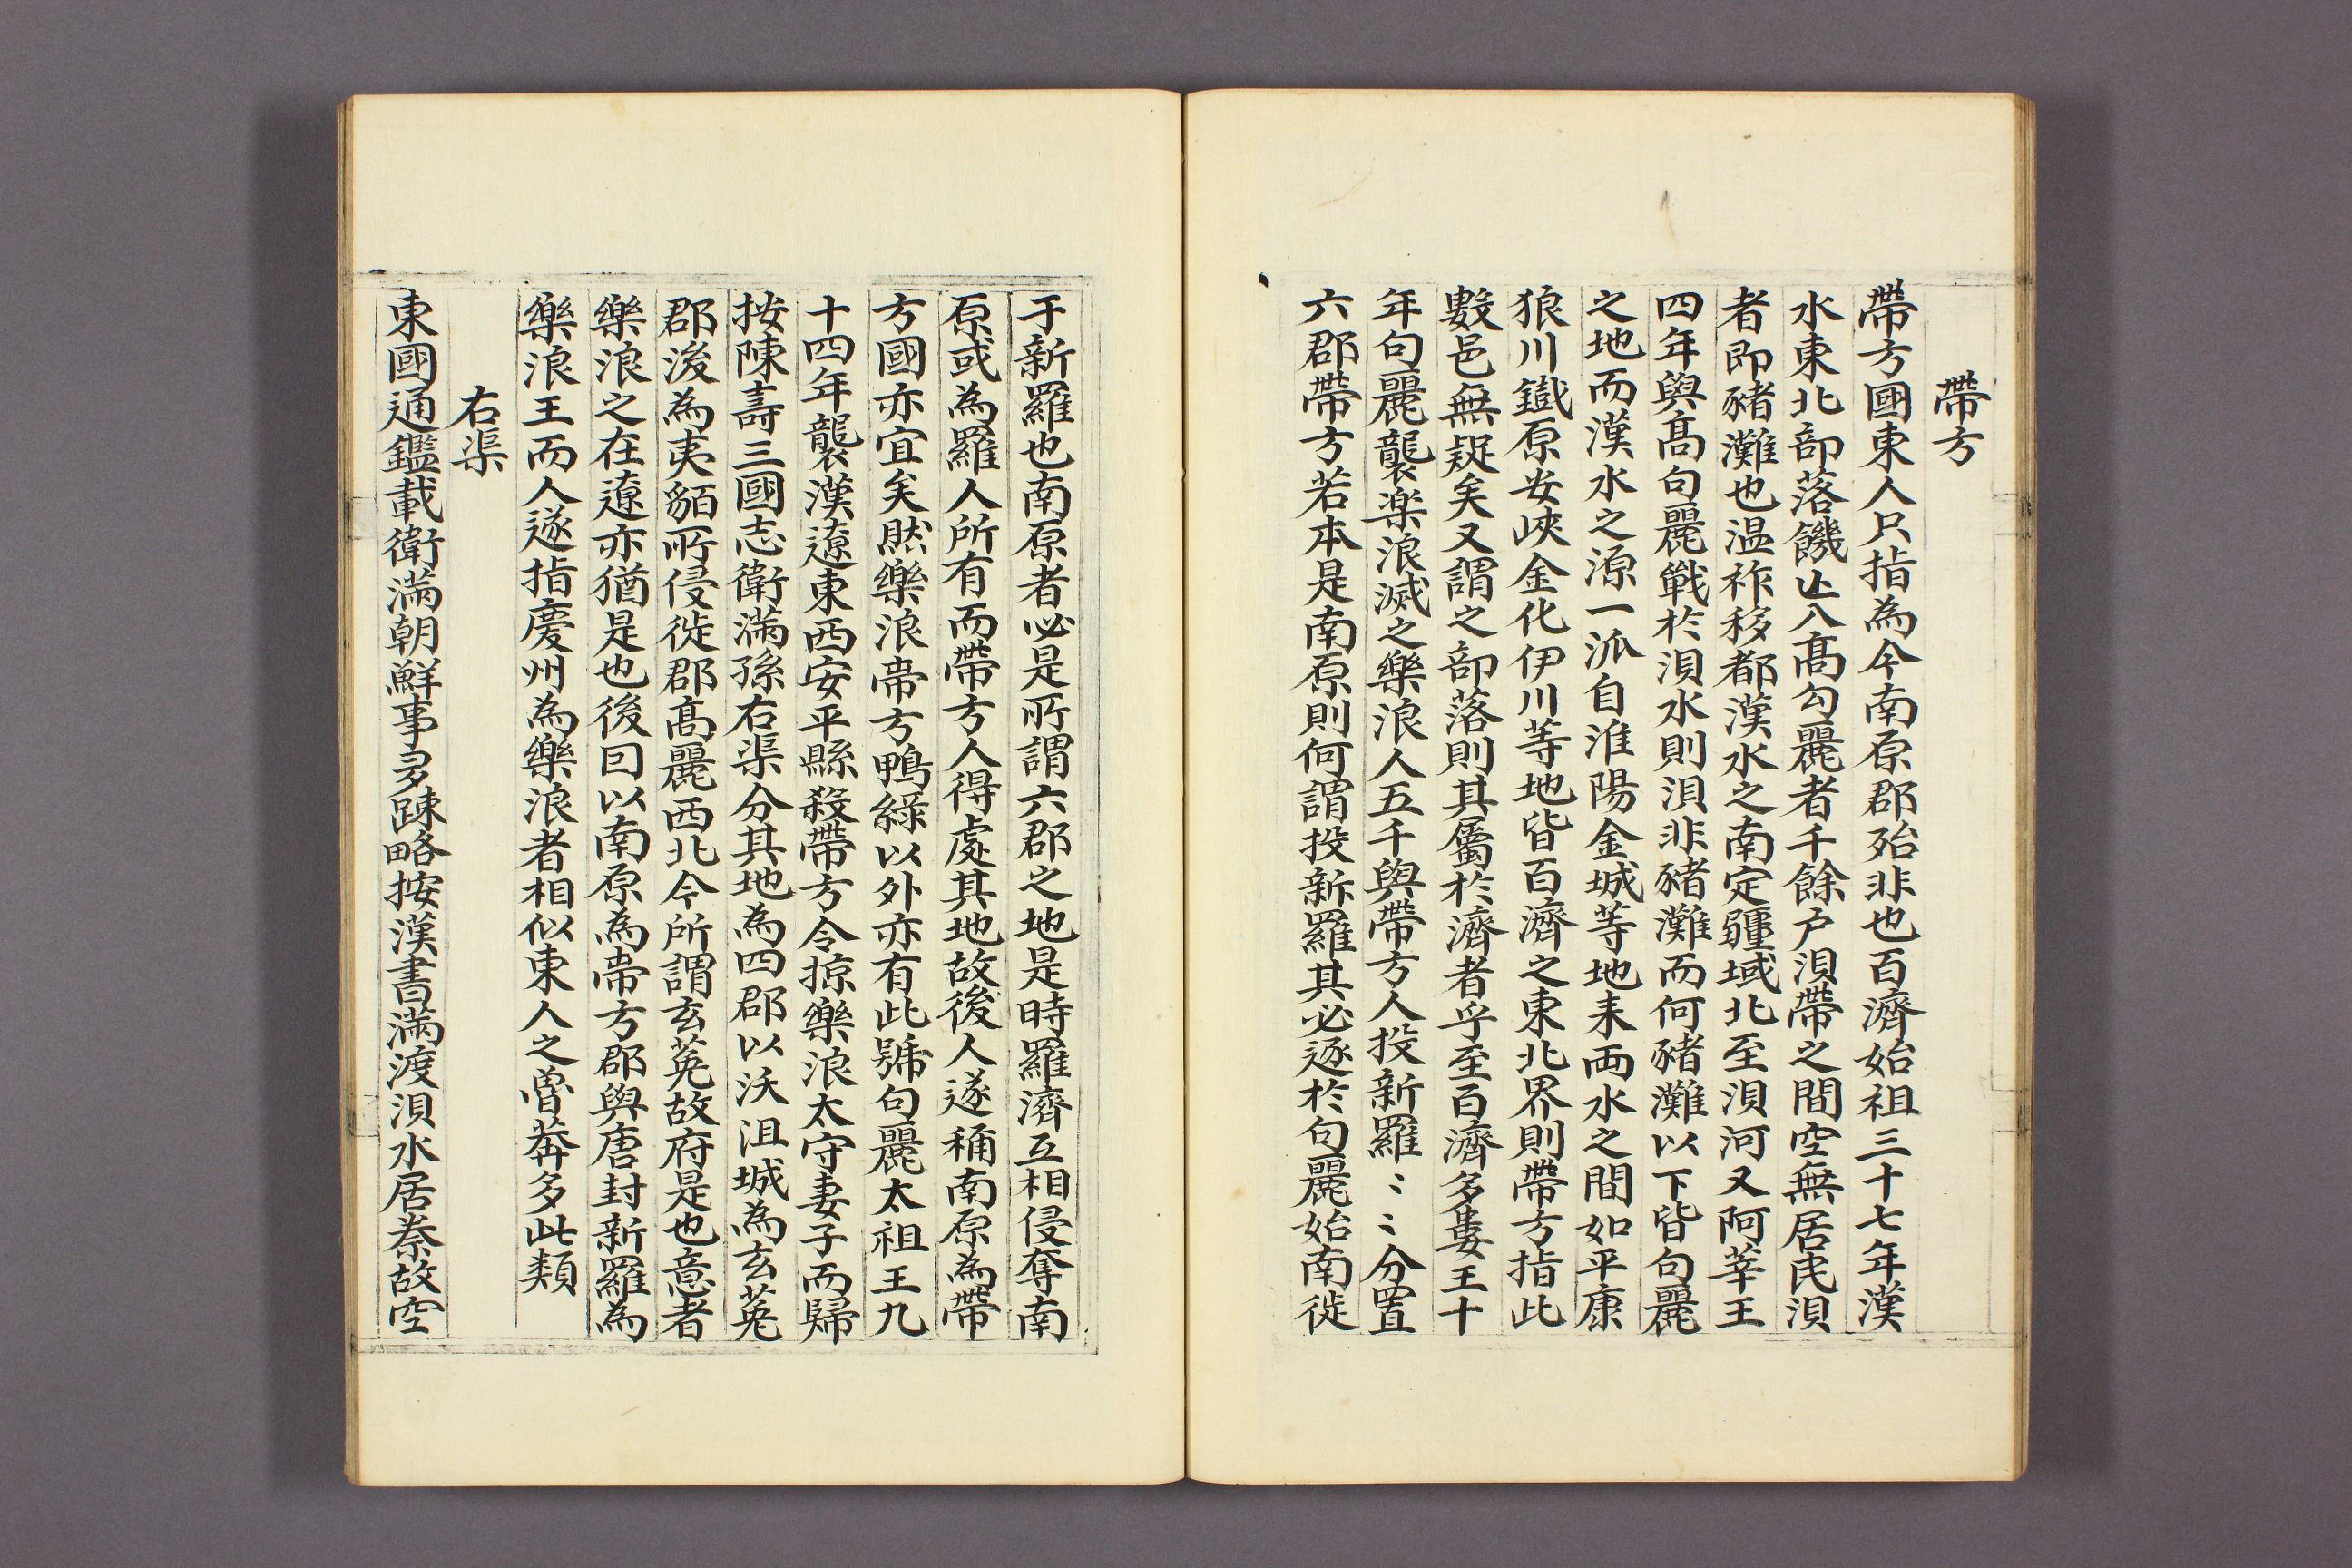 帶方
帶方國東人只指為今南原郡殆非也百濟始祖三十七年漢
水東北部落饑亡入髙勾麗者千餘户浿帶之間空無居民浿
者即豬灘也温祚移都漢水之南定疆域北至浿河又阿莘王
四年與髙句麗戰於浿水則浿非豬灘而何豬灘以下皆句麗
之地而漢水之源一派自淮陽金城等地来両水之間如平康
狼川鐵原安峽金化伊川等地皆百濟之東北界則帶方指此
數邑無疑矣又謂之部落則其屬於濟者乎至百濟多婁王十
年句麗襲楽浪滅之樂浪人五千與帶方人投新羅〻〻分置
六郡帶方若本是南原則何謂投新羅其必逐於句麗始南徙
于新羅也南原者必是所謂六郡之地是時羅濟互相侵奪南
原或為羅人所有而帶方人得處其地故後人遂稱南原為帶
方國亦宜矣然樂浪帶方鴨綠以外亦有此號句麗太祖王九
十四年襲漢遼東西安平縣殺帶方令掠樂浪太守妻子而歸
按陳壽三國志衛滿孫右渠分其地為四郡以沃沮城為玄菟
郡後為夷貊所侵徙郡髙麗西北今所謂玄菟故府是也意者
樂浪之在遼亦猶是也後回以南原為帶方郡與唐封新羅為
樂浪王而人遂指慶州為樂浪者相似東人之魯莽多此類
右渠
東國通鑑載衛滿朝鮮事多踈略按漢書滿渡浿水居秦故空